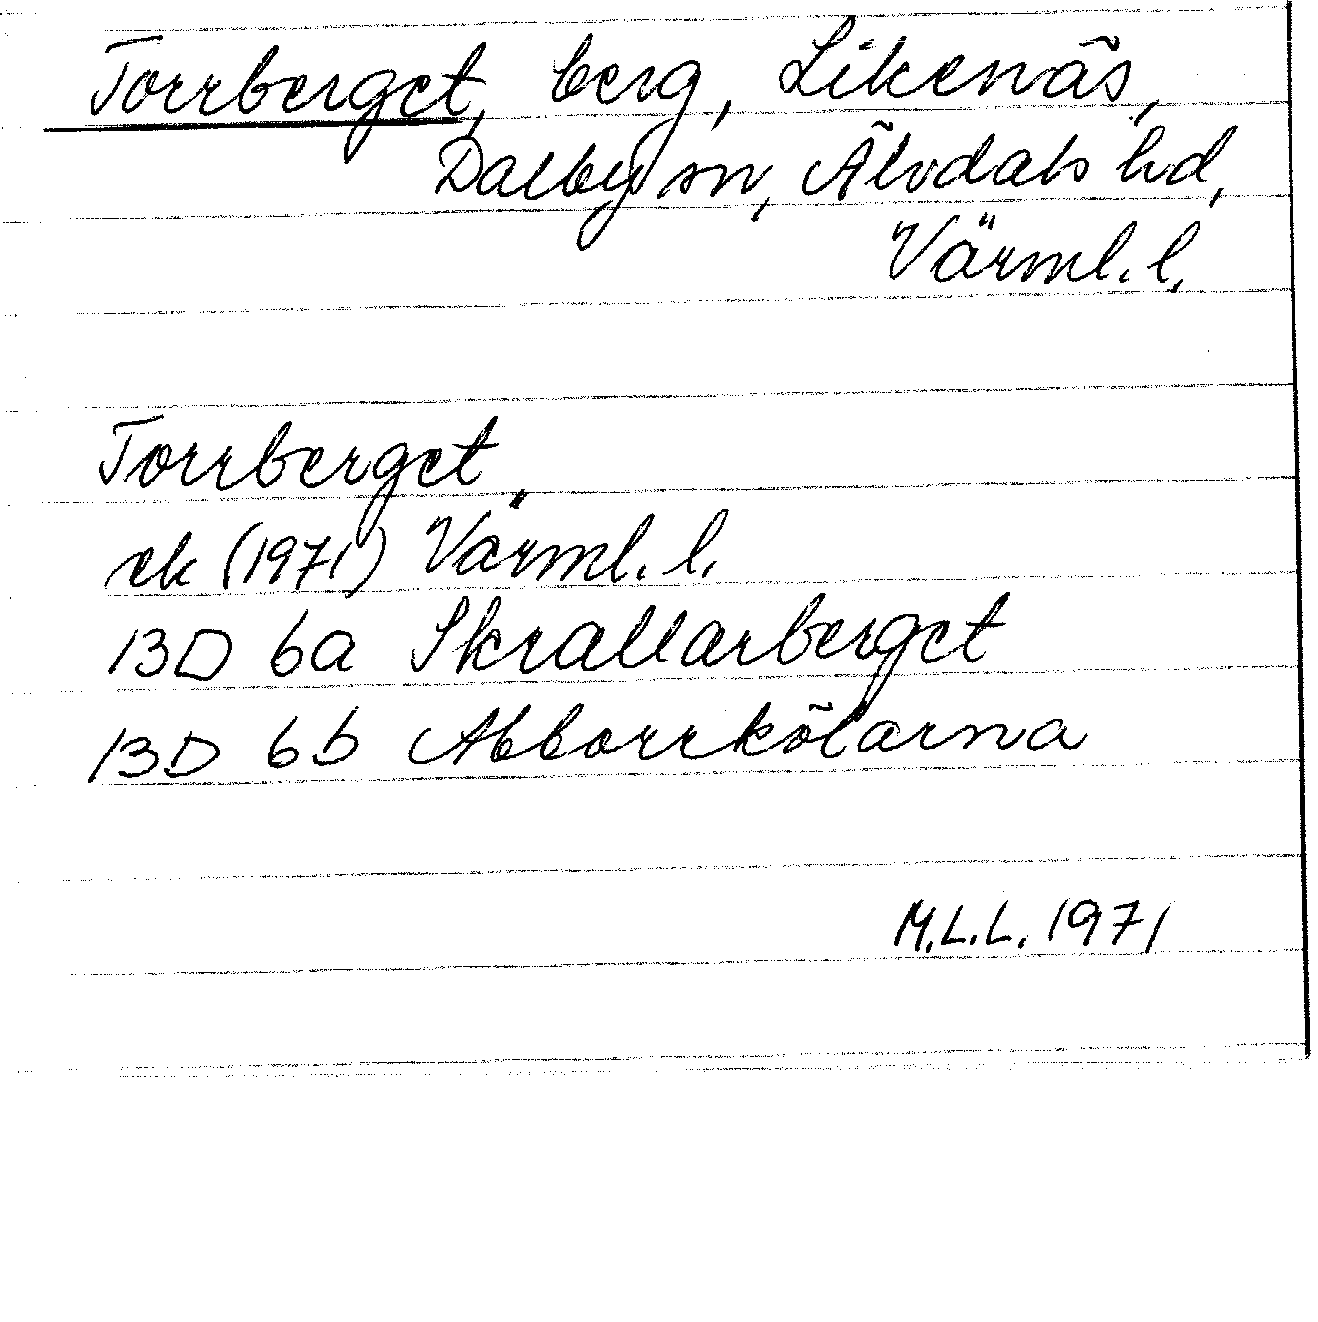 Torrberget, berg, Likenäs,
Dalby sn, Älvdals hd,
Värml. l.
Torrberget,
ek (1971) Värml. l.
13D 6a Skrallarberget
13D 6b Abborrkölarna
M.L.L. 1971